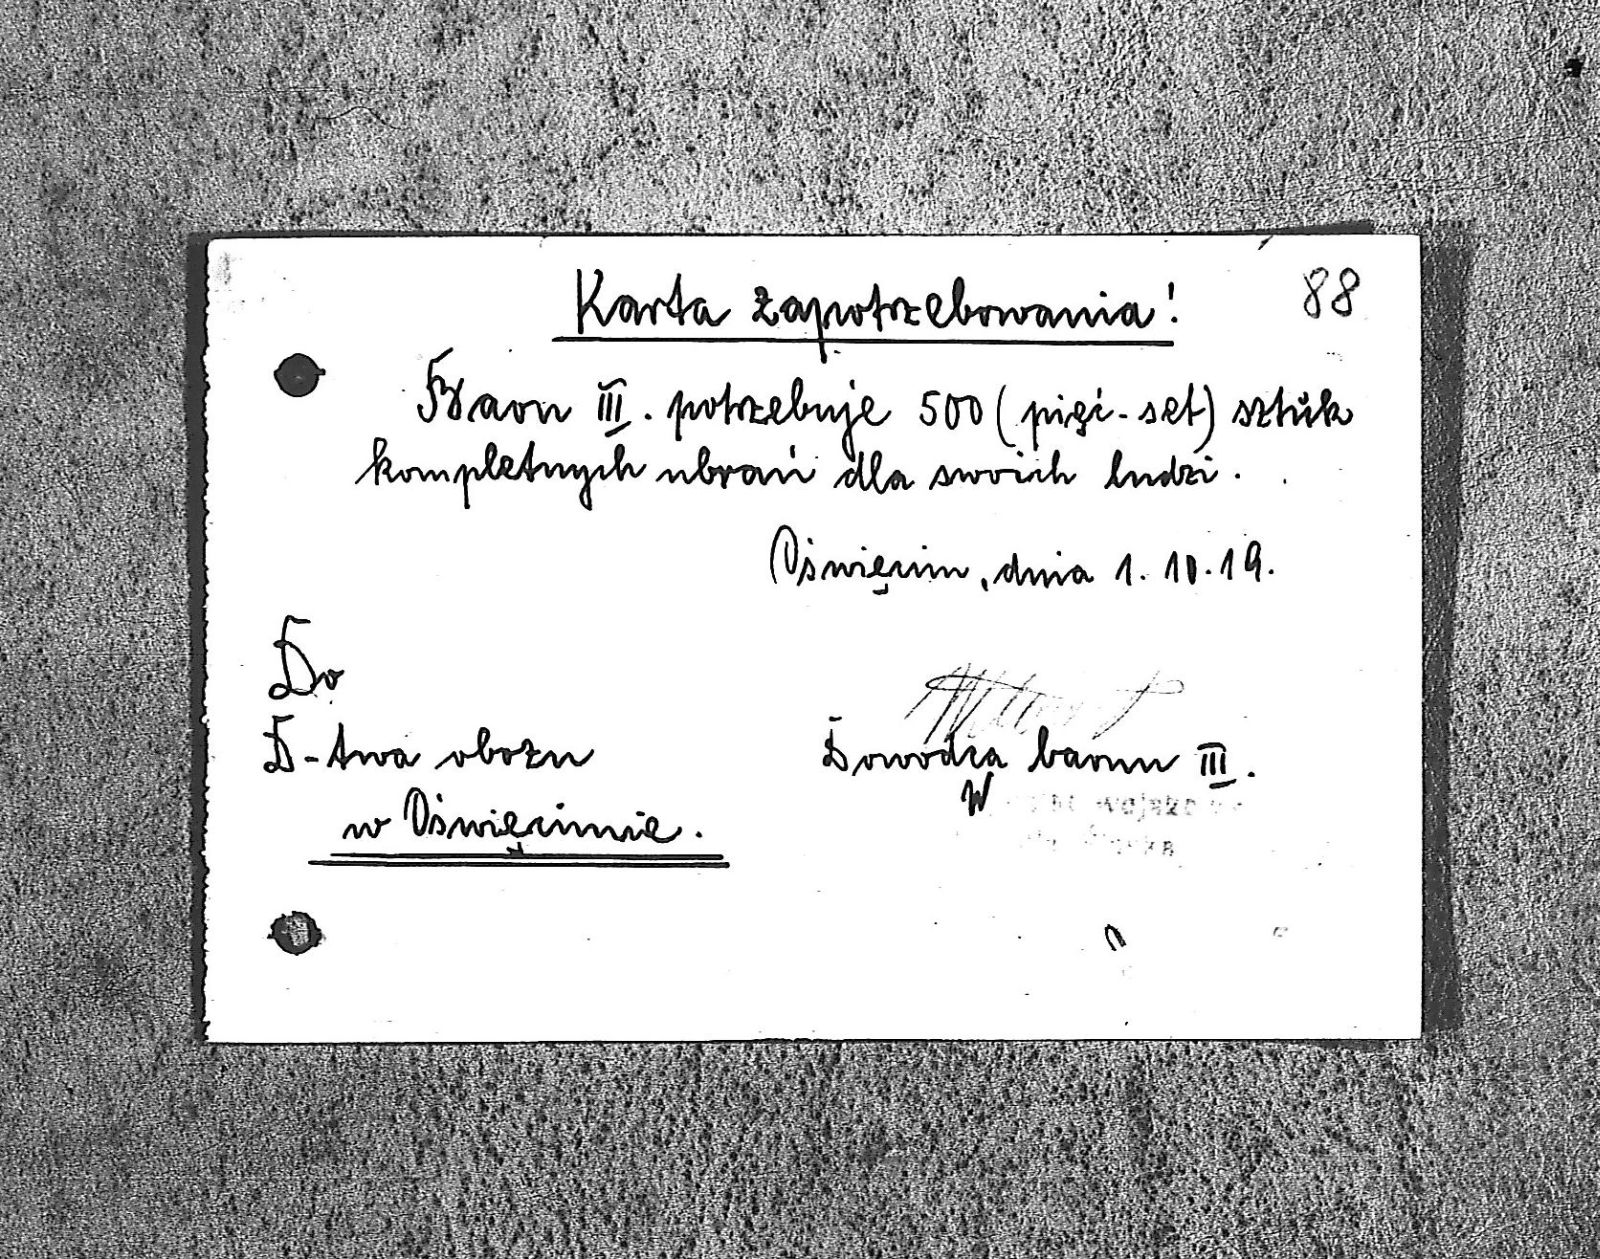 88
Karta zapotrzebowania!
Baon III. potrzebuje 500 (pięć-set) sztuk
kompletnych ubrań dla swoich ludzi.
Oświęcim, dnia 1.10.19.
Do
D-twa obozu
w Oświęcimie.
Dowódca baonu III.
W